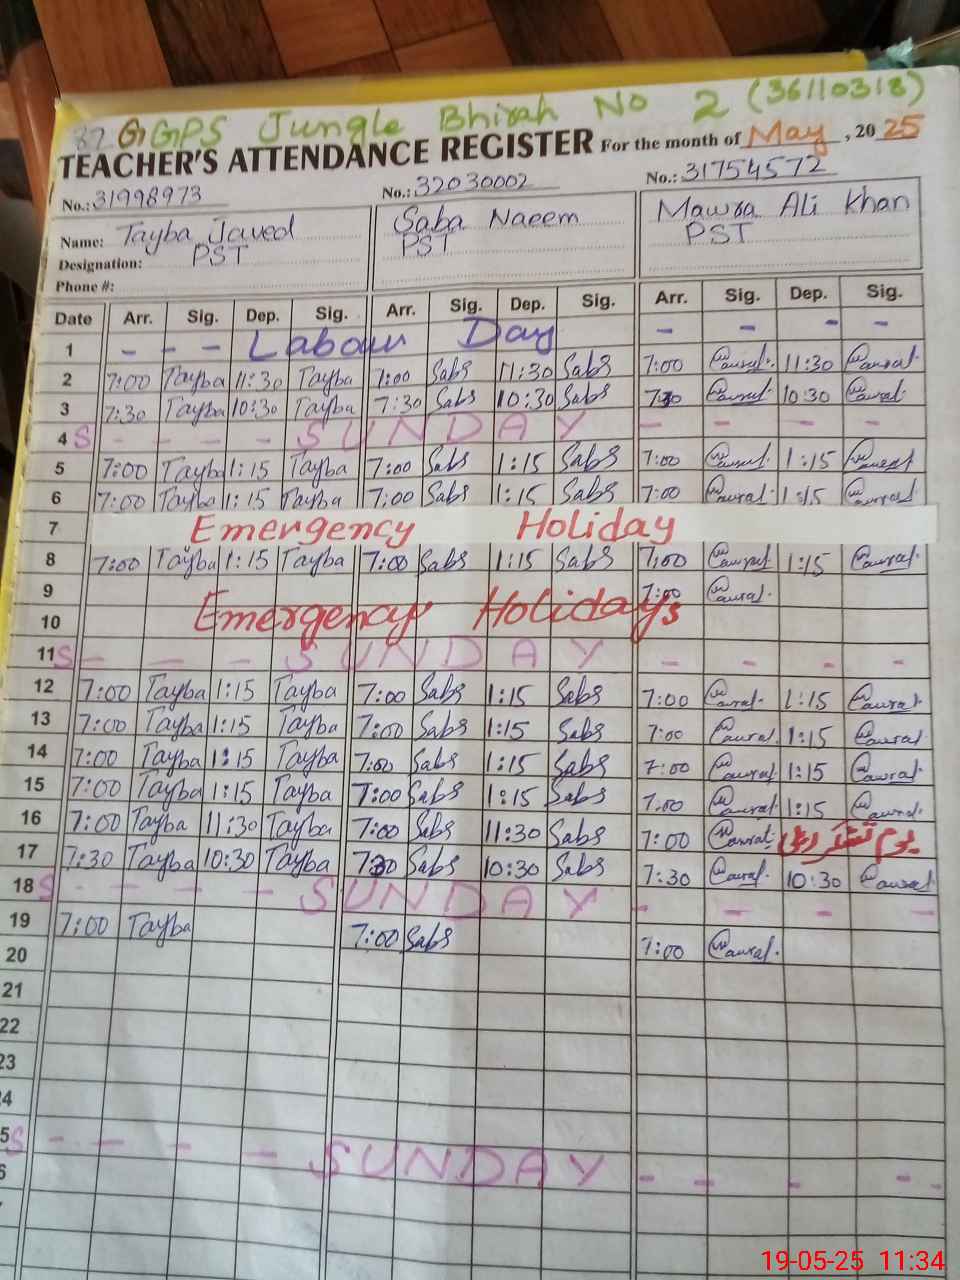 GGPS Jungle Bhirah No 2 (36110318)
TEACHER'S ATTENDANCE REGISTER For the month of May, 2025
No.: 31998973 No.: 32030002 No.: 31754572
Name: Tayba Javed Saba Naeem Mawra Ali Khan
Designation: PST PST PST
Phone #:
Date Arr. Sig. Dep. Sig. Arr. Sig. Dep. Sig. Arr. Sig. Dep. Sig.
1 - - - Labour Day - - - -
2 7:00 Tayba 11:30 Tayba 7:00 Sabs 11:30 Sabs 7:00 11:30
3 7:30 Tayba 10:30 Tayba 7:30 Sabs 10:30 Sabs 7:30 10:30
4 S - - - - SUNDAY - - - -
5 7:00 Tayba 1:15 Tayba 7:00 Sabs 1:15 Sabs 7:00 1:15
6 7:00 Tayba 1:15 Tayba 7:00 Sabs 1:15 Sabs 7:00 1:15
7 Emergency Holiday
8 7:00 Tayba 1:15 Tayba 7:00 Sabs 1:15 Sabs 7:00 1:15
9 7:00
10 Emergency Holidays
11 S - - - SUNDAY - - - -
12 7:00 Tayba 1:15 Tayba 7:00 Sabs 1:15 Sabs 7:00 1:15
13 7:00 Tayba 1:15 Tayba 7:00 Sabs 1:15 Sabs 7:00 1:15
14 7:00 Tayba 1:15 Tayba 7:00 Sabs 1:15 Sabs 7:00 1:15
15 7:00 Tayba 1:15 Tayba 7:00 Sabs 1:15 Sabs 7:00 1:15
16 7:00 Tayba 11:30 Tayba 7:00 Sabs 11:30 Sabs 7:00 یوم تشکر
17 7:30 Tayba 10:30 Tayba 7:30 Sabs 10:30 Sabs 7:30 10:30
18 S - - - - SUNDAY - - - -
19 7:00 Tayba 7:00 Sabs 7:00
20
21
22
23
24
25 S - - - - SUNDAY - - - -
19-05-25 11:34